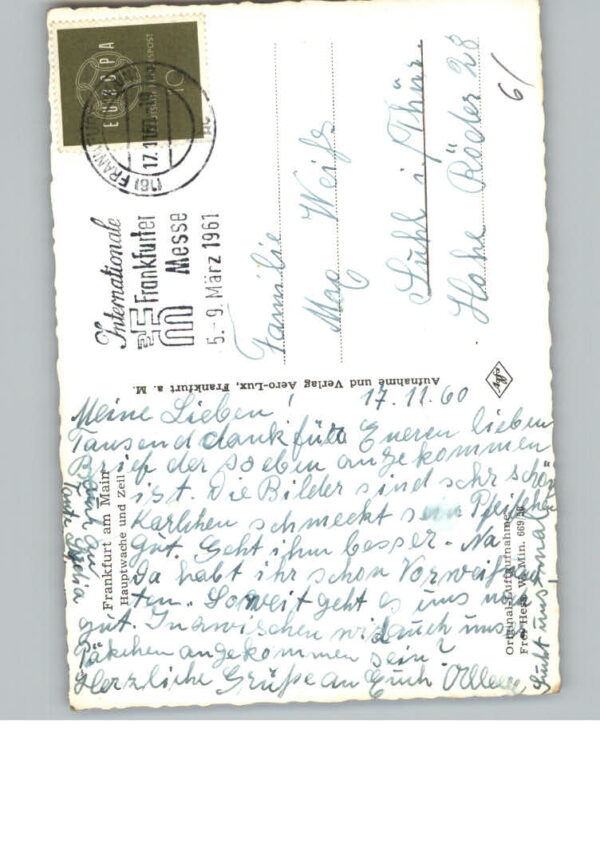 EUROPA
DEUTSCHE BUNDESPOST
10
(16) FRANKFURT
17.11.60
Internationale
Frankfurter
Messe
5.-9. März 1961
Familie
Max Weiß
Suhl i/Thür.
Hohe Röder 28
6/
Aufnahme und Verlag Aero-Lux, Frankfurt a. M.
Frankfurt am Main
Hauptwache und Zeil
Original-Luftaufnahme
Meine Lieben! 17.11.60
Tausend dank für Eueren lieben
Brief der soeben angekommen
ist. Die Bilder sind sehr schön
Karlchen schmeckt sein Pfeifchen
gut. Geht ihm besser. Na
Da habt ihr schon Vorweihnach
ten. Soweit geht es uns noch
gut. Inzwischen wird auch unser
Päckchen angekommen sein?
Herzliche Grüße an Euch
Tante